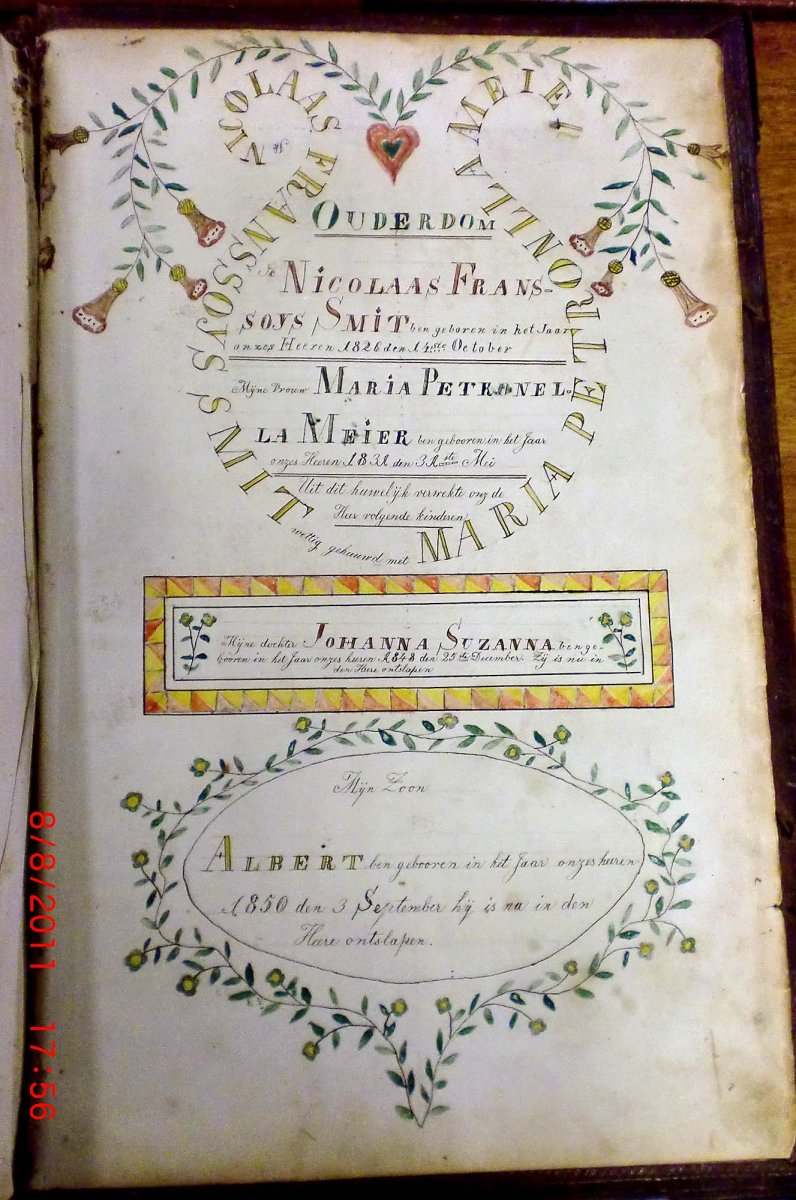 NICOLAAS FRANSSOYS SMIT
wettig gehuuwd met
MARIA PETRONILLA MEIER
OUDERDOM
Ik NICOLAAS FRANS-
SOYS SMIT ben geboren in het Jaar
onzes Heeren 1826 den 14ste October
Mijne Vrouw MARIA PETRONEL-
LA MEIER ben gebooren in het Jaar
onzes Heeren 1831 den 31ste Mei
Uit dit huwelijk verwekte ons de
Heer volgende kinderen
Mijne dochter JOHANNA SUZANNA ben ge-
booren in het Jaar onzes heeren 1848 den 25ste December. Zij is nu in
den Heere ontslapen
Mijn Zoon
ALBERT ben gebooren in het Jaar onzes heeren
1850 den 3 September hij is nu in den
Heere ontslapen.
8/8/2011 17:56